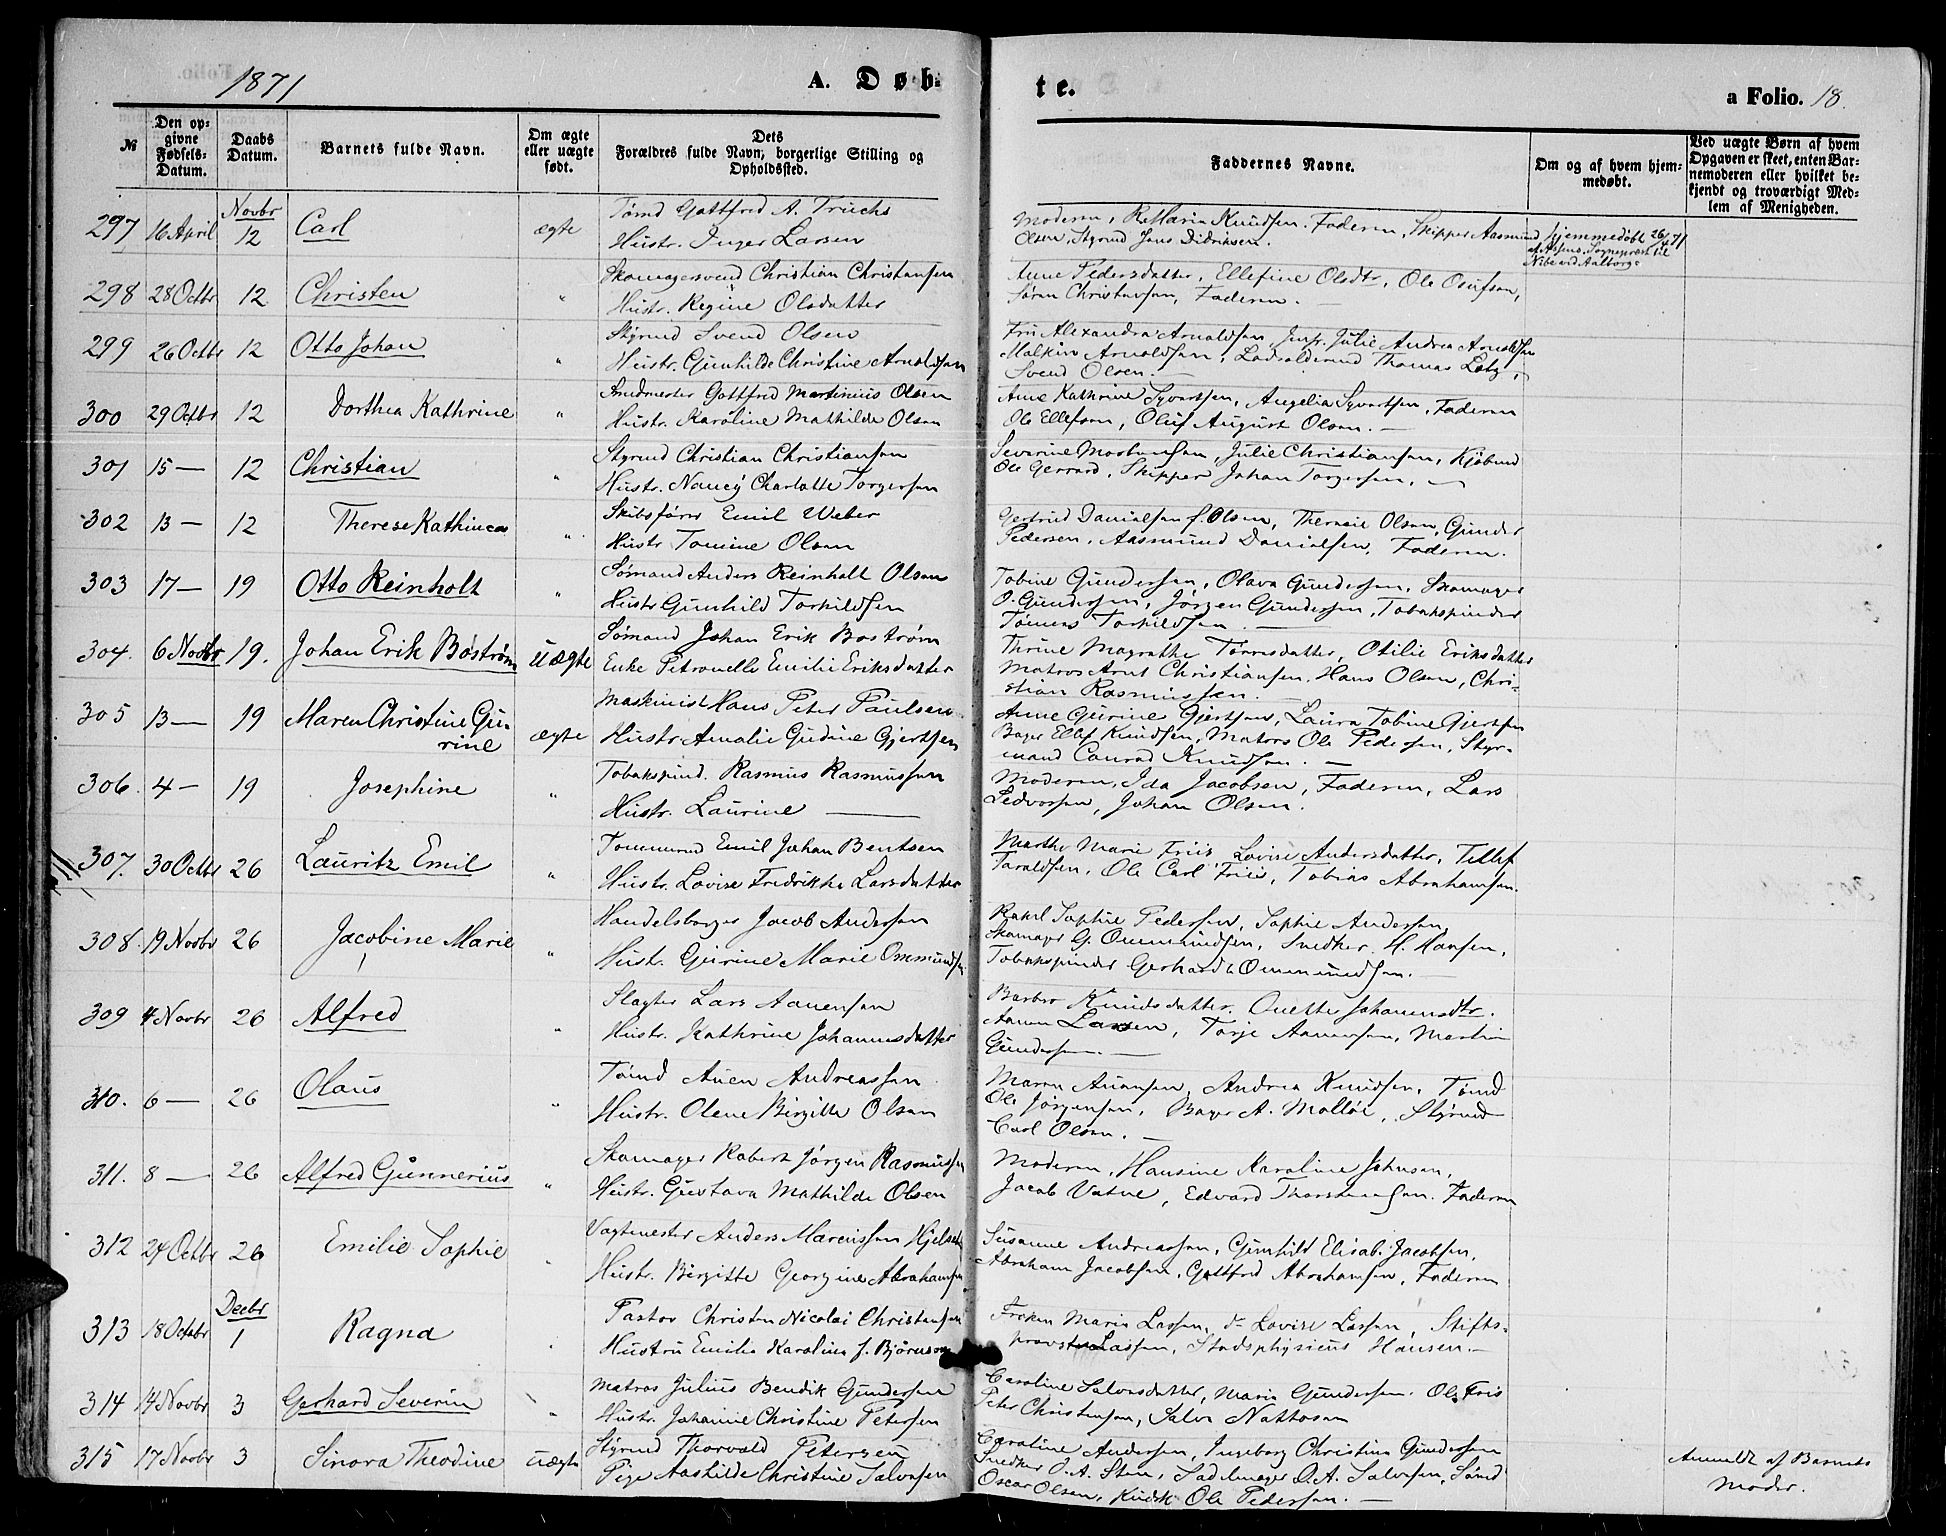 1871
A. Døb-
te.
a Folio. 18.
№
Den op-
givne
Fødsels-
Datum.
Daabs
Datum.
Barnets fulde Navn.
Om ægte
eller uægte
født.
Dets
Forældres fulde Navn, borgerlige Stilling og
Opholdssted.
Faddernes Navne.
Om og af hvem hjem-
medøbt.
Ved uægte Børn af hvem
Opgaven er skeet, enten Bar-
nemoderen eller hvilket be-
kjendt og troværdigt Med-
lem af Menigheden.
297 16 April Novbr 12 Carl ægte Tømd Gottfred A. Truchs
Hustr. Inger Larsen
Moderen, Maria Knudsen. Faderen, Skipper Aasmund
Olsen, Styrmd Jens Didriksen.
Hjemmedøbt 26/4 71
Sognepræst til
Nibe ved Aalborg
298 28 Octbr 12 Christen " Skomagersvend Christian Christensen
Hustr. Regine Olsdatter
Anne Pedersdatter, Ellefine Olsdtr, Ole Osufsen,
Søren Christensen, Faderen. —
299 26 Octbr 12 Otto Johan " Styrmd Svend Olsen
Hustr. Gunhilde Christine Arnoldsen
Fru Alexandra Arnoldsen, Jmfr. Julie Andrea Arnoldsen
Malkin Arnoldsen, Thomas
Svend Olsen. —
300 29 Octbr 12 Dorthea Kathrine " Smedmester Gottfred Martinius Olsen
Hustr. Karoline Mathilde Olsen
Anne Kathrine Syvertsen, Angelia Syvertsen, Faderen
Ole Ellefsen, Oluf August Olsen. —
301 15 — 12 Christian " Styrmd Christian Christiansen
Hustr. Nancy Charlotte Torgersen
Severine Mortensen, Julie Christiansen, Kjøbmd
Ole Gerrard, Skipper Johan Torgersen. —
302 13 — 12 Therese Kathinca " Skibsfører Emil Weber
Hustr Tomine Olsen
Gertrud Danielsen f. Olsen, Theresie Olsen, Gunder
Pedersen, Aasmund Danielsen, Faderen.
303 17 — 19 Otto Reinholt " Sømand Anders Reinholt Olsen
Hustr Gunhild Torkildsen
Tobine Gundersen, Olava Gundersen, Skomager
O. Gundersen, Jørgen Gundersen, Tobakspinder
Tønnes Torkildsen —
304. 6 Novbr 19. Johan Erik Bøstrøm uægte Sømand Johan Erik Bostrøm
Enke Petronelle Emilie Eriksdatter
Thrine Magrethe Tønnesdatter, Otilie Eriksdatter
Matros Arnt Christiansen. Hans Olsen, Chri-
stian Rasmussen.
305 13 — 19 Maren Christine Gu-
rine ægte Maskinist Hans Peter Paulsen
Hustr Amalie Gudine Gjertsen
Anne Gurine Gjertsen, Laura Tobine Gjertsen
Bager Ellef Knudsen, Matros Ole Pedersen, Styr-
mand Conrad Knudsen. —
306. 4 — 19 Josephine " Tobakspind. Rasmus Rasmussen
Hustr. Laurine —
Moderen, Ida Jacobsen, Faderen, Lars
Pedersen, Johan Olsen.
307. 30 Octbr 26 Lauritz Emil " Tømmermd Emil Johan Bentsen
Hustr. Lovise Fredrikke Larsdatter
Marthe Marie Friis, Lovise Andersdatter, Tellef
Taraldsen, Ole Carl Friis, Tobias Abrahamsen.
308. 19 Novbr 26 Jacobine Marie " Handelsborger Jacob Andersen
Hustr. Gurine Marie Ommundsen
Rakel Sophie Pedersen, Sophie Andersen,
Skomager G. Ommundsen, Snedker H. Hansen,
Tobakspinder Gerhard Ommundsen. —
309 4 Novbr 26 Alfred " Slagter Lars Aanensen
Hustr. Kathrine Johannesdatter
Barbro Knudsdatter. Onette Johannesdtr.
Aanen Larsen, Torje Aanensen, Martin
Gundersen. —
310. 6 — 26 Olaus " Tømd Auen Andreassen
Hustr. Olene Birgitte Olsen
Maren Auensen, Andrea Knudsen, Tømd
Ole Jørgensen, Bager A. Molløe, Styrmd
Carl Olsen. —
311. 8 — 26 Alfred Gunnerius " Skomager Robert Jørgen Rasmussen
Hustr. Gustava Mathilde Olsen
Moderen, Hansine Karoline Johnsen,
Jacob Vatne, Edvard Thorstensen. Faderen
312 24 Octbr 26 Emilie Sophie " Vagtmester Anders Marcussen Hjelseth
Hustr. Birgitte Georgine Abrahamsen
Susanne Andreassen, Gunhild Elisab. Jacobsen,
Abraham Jacobsen, Gottfred Abrahamsen, Faderen
313 18 Octobr Decbr 1 Ragna " Pastor Christen Nicolai Christensen
Hustru Emilie Karoline f. Bjørnson
Frøken Maria Lassen, do Lovise Lassen, Stifts-
provst Lassen, Stadsphysicus Hansen. —
314 14 Novbr 3 Gerhard Severin " Matros Julius Bendik Gundersen
Hustr. Johanne Christine Petersen
Caroline Salvesdatter, Maria Gundersen. Ole Friis
Peter Christensen, Salve Nattosen
315 17 Novbr 3 Sinora Theodine uægte Styrmd Thorvald Petersen
Pige Aashilde Christine Salvesen
Caroline Andersen, Ingeborg Christine Gundersen
Snedker O. A. Steen, Sadelmager O. A. Salvesen, Sømd
Oscar Olsen, Kudsk Ole Pedersen. —
Anmeldt af Barnets
Moder.